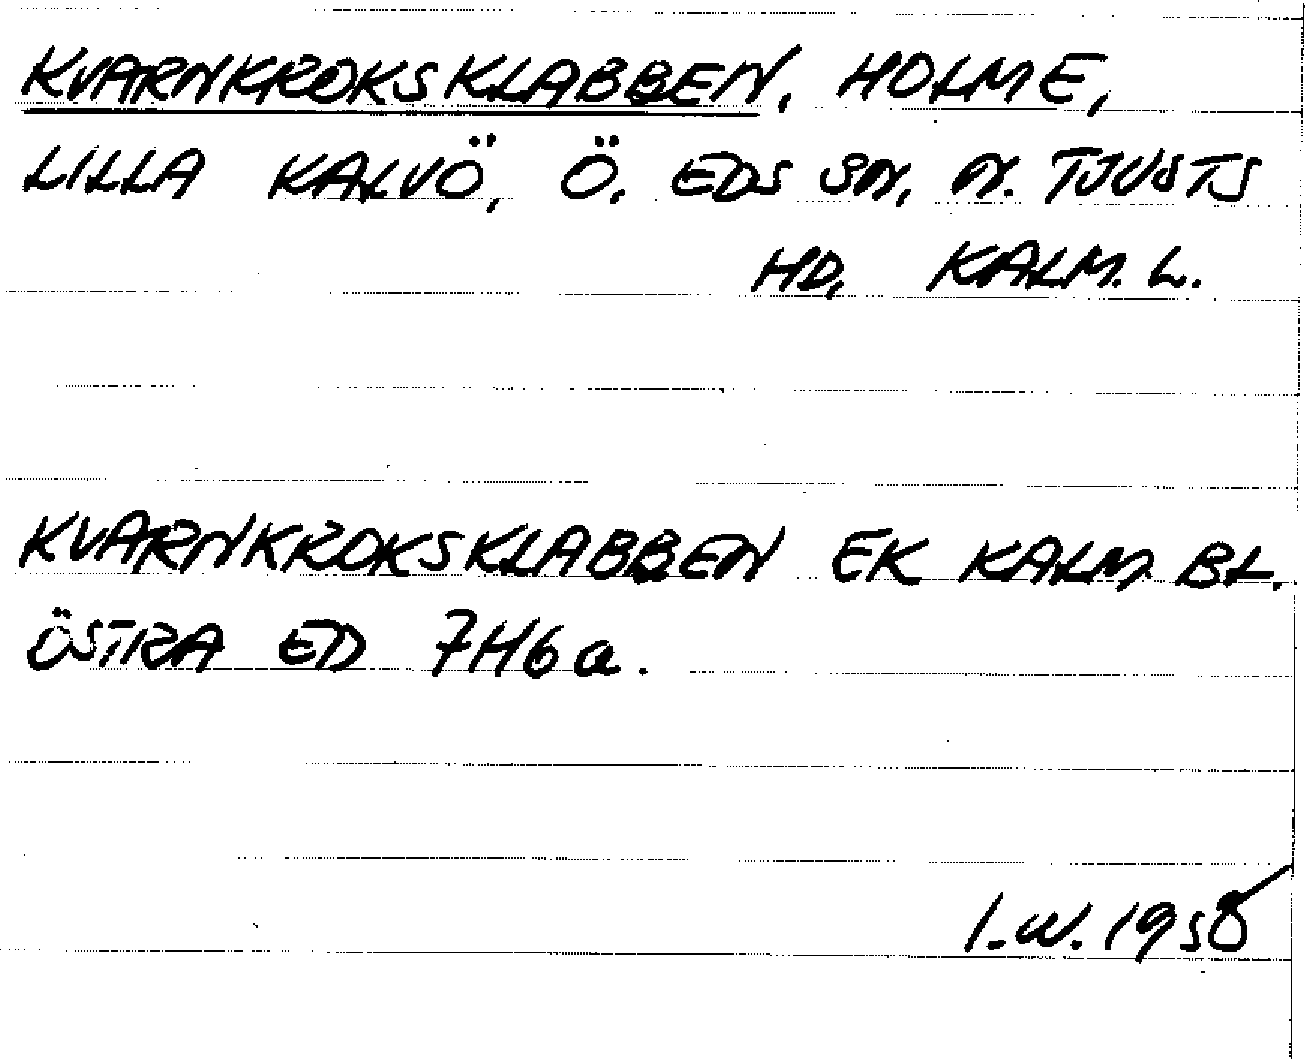 KVARNKROKSKLABBEN, HOLME,
LILLA KALVÖ, Ö. EDS SN, N. TJUSTS
HD, KALM. L.
KVARNKROKSKLABBEN EK KALM. BL.
ÖSTRA ED 7H6a.
I.W. 1958